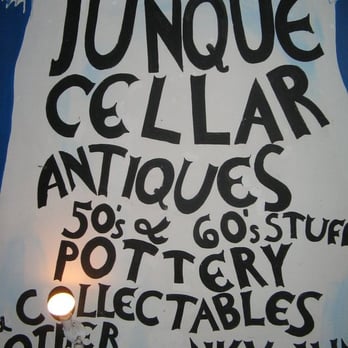 JUNQUE
CELLAR
ANTIQUES
50's & 60's STUFF
POTTERY
& COLLECTABLES
OTHER